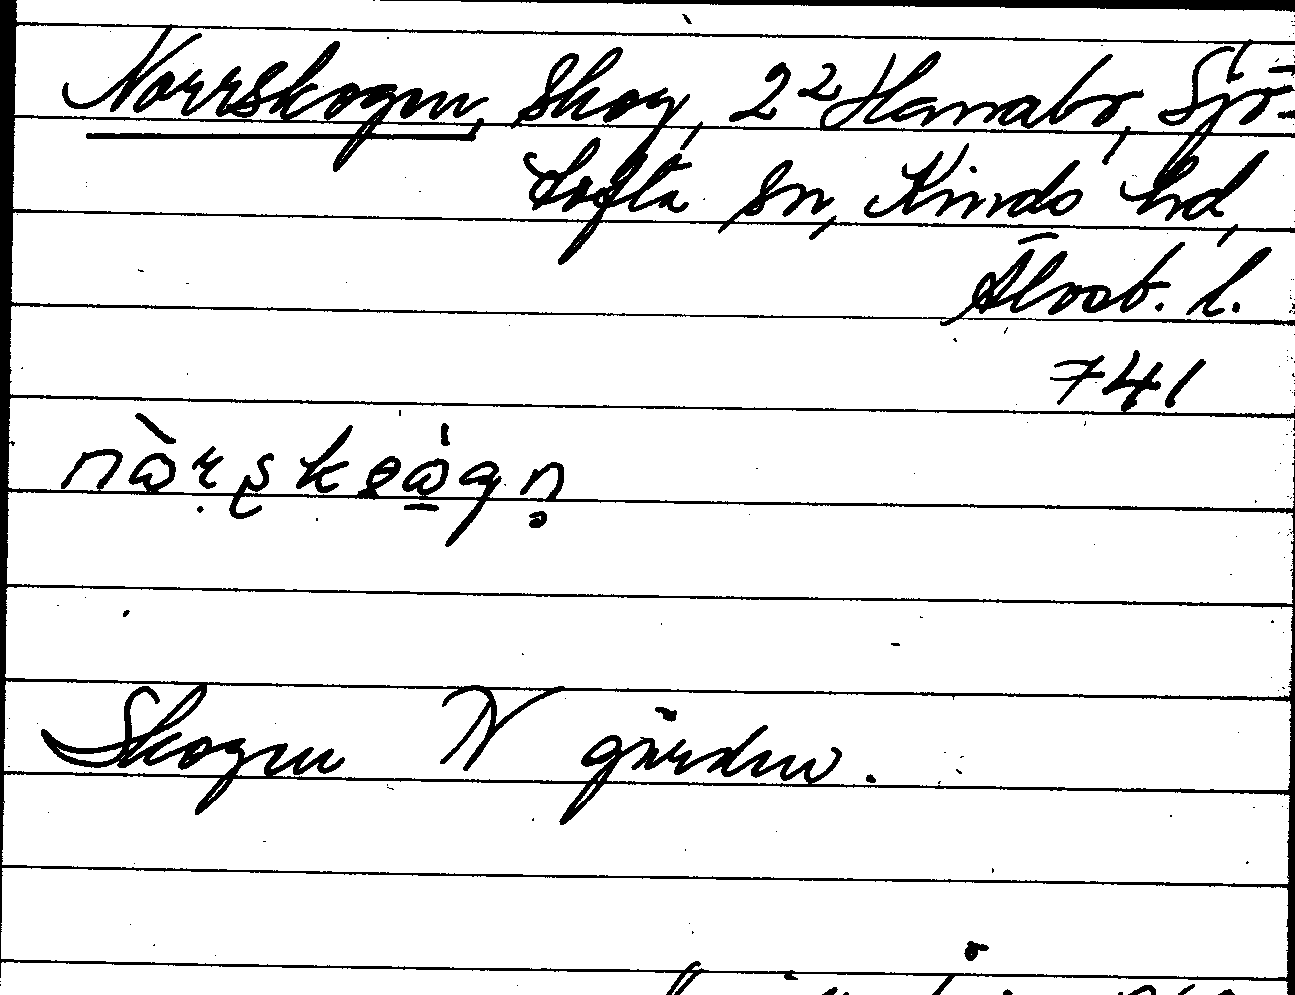 Norrskogen, Skog, 2² Hannabo, Sjö-
tofta sn, Kinds hd,
Älvsb. l.
741
Skogen N gården.